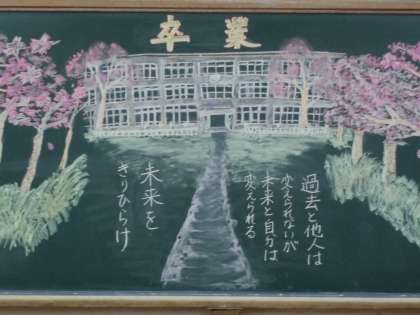 卒業
過去と他人は
変えられないが
未来と自分は
変えられる
未来を
きりひらけ